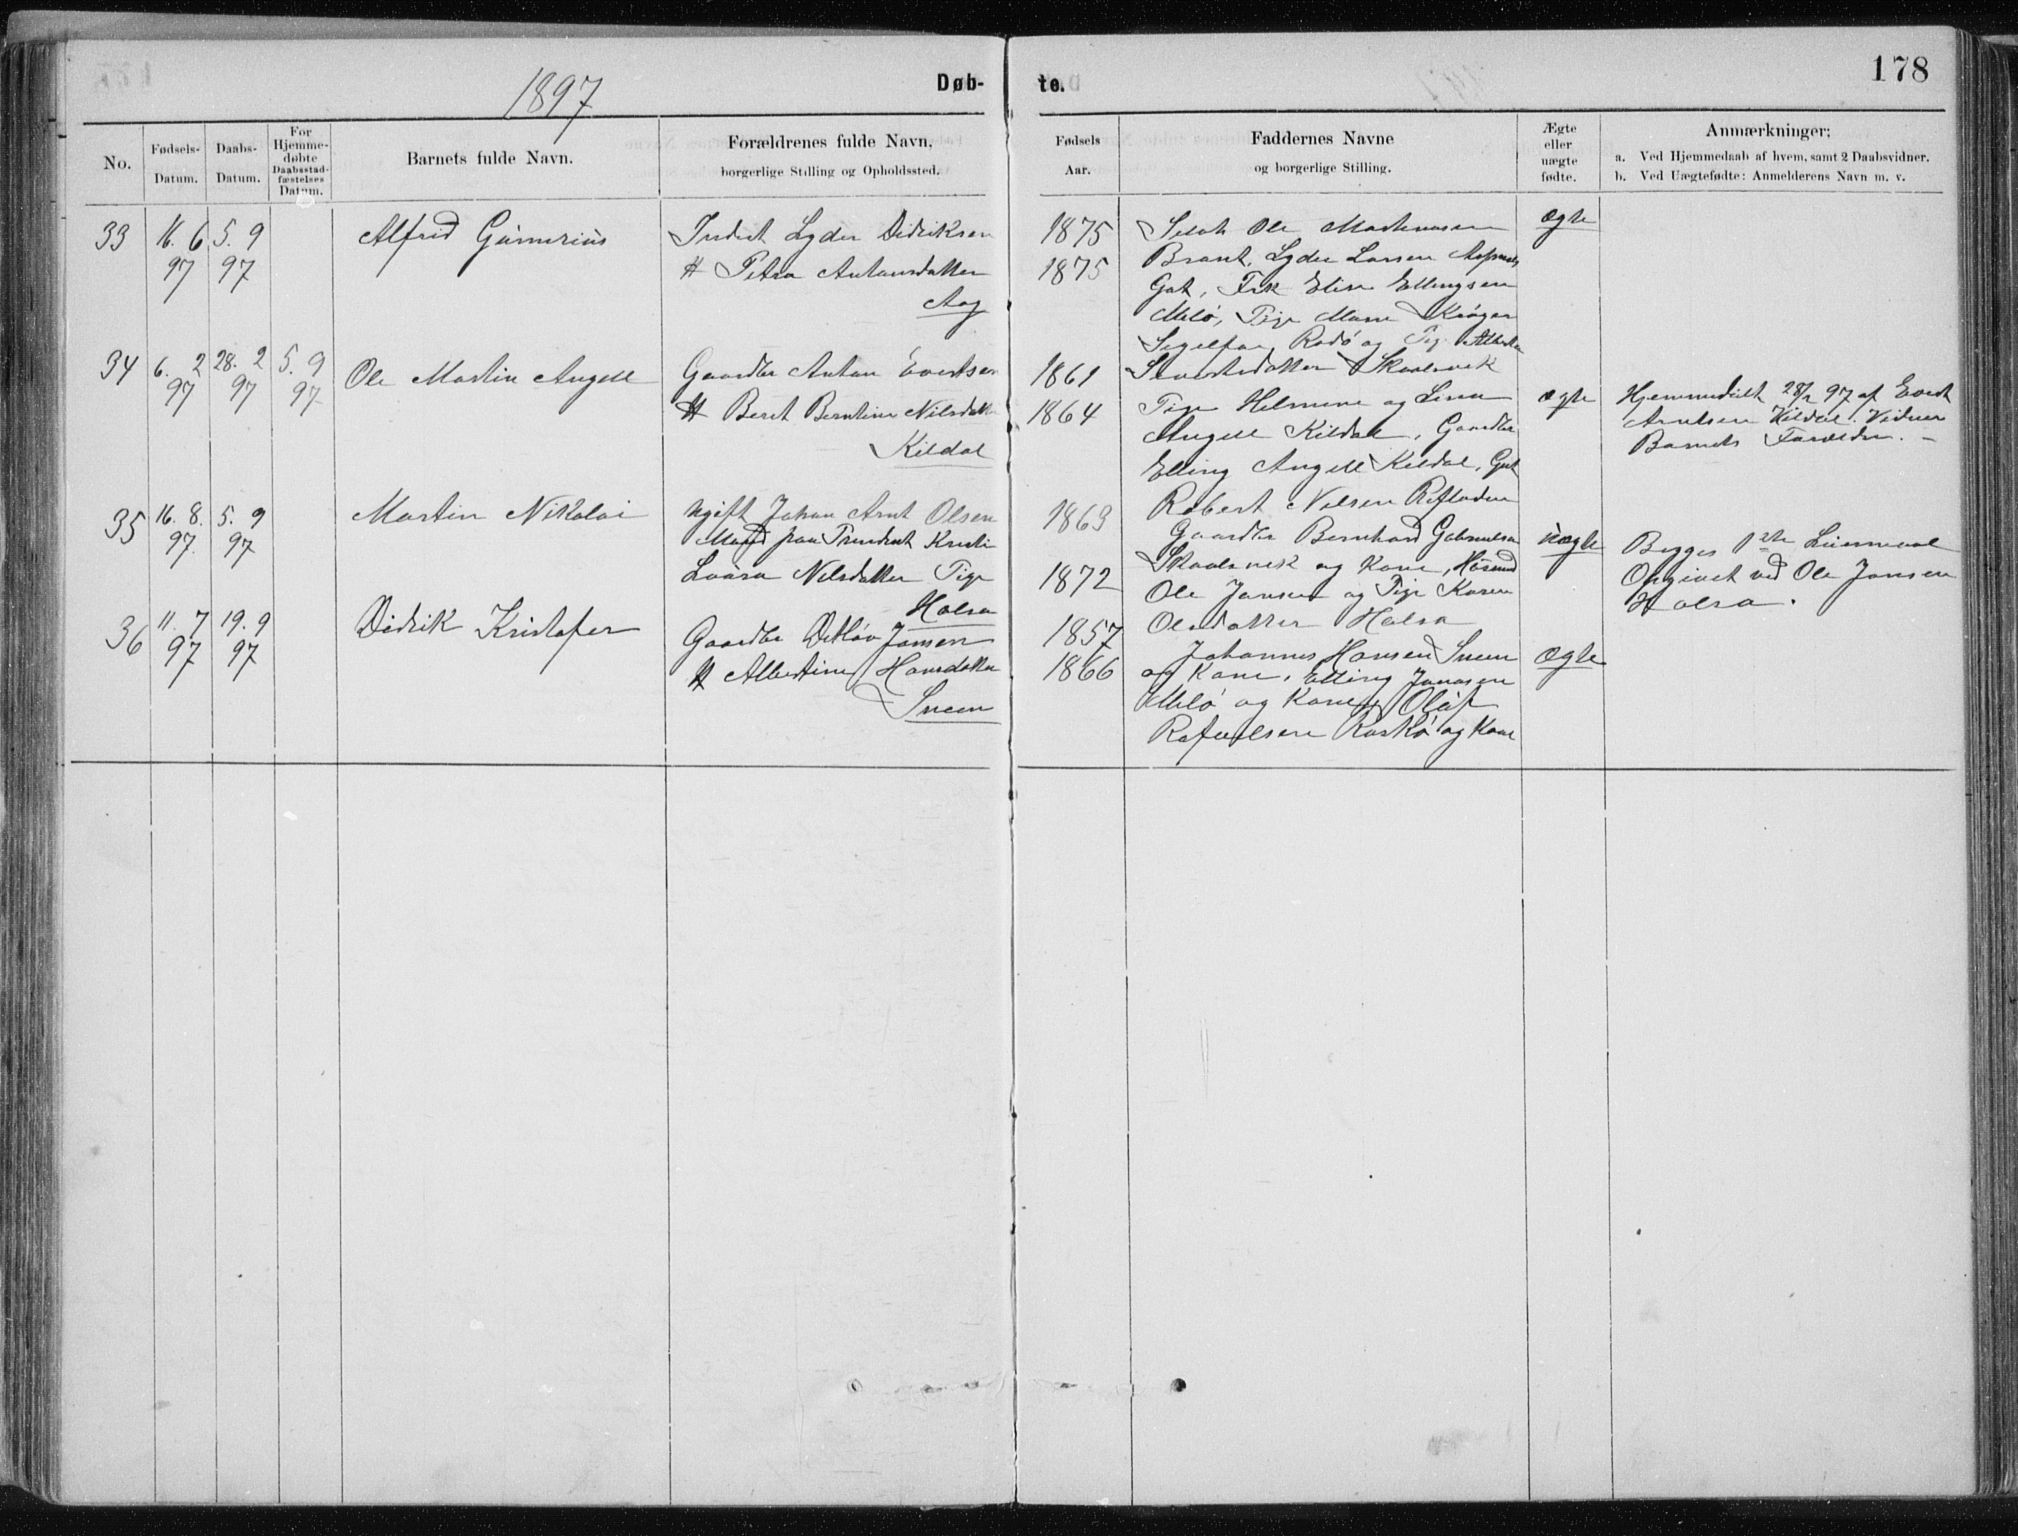 178
1897
Døb-
te.
No.
Fødsels-
Datum.
Daabs-
Datum.
For
Hjemme-
døbte
Daabsstad-
fæstelses
Datum.
Barnets fulde Navn.
Forældrenes fulde Navn,
borgerlige Stilling og Opholdssted.
Fødsels
Aar.
Faddernes Navne
og borgerlige Stilling.
Ægte
eller
uægte
fødte.
Anmærkninger:
a. Ved Hjemmedaab af hvem, samt 2 Daabsvidner.
b. Ved Uægtefødte: Anmelderens Navn m. v.
33
16. 6
97
5. 9
97
Alfred Gunnerius
Inderst Lyder Didriksen
H Petra Antonsdatter
Aag
1875
1875
Ole Martinusen
Brant, Lyder Larsen
Gut, Frk Elise Ellingsen
Melø, Pige
Rødø og Pig
Sivertsdatter Skaalsvik
ægte
34
6. 2
97
28. 2
97
5. 9
97
Ole Martin Angell
Gaardbr Anton Evertsen
H Beret Berntine Nilsdatter
Kildal
1861
1864
Pige Helmine og Lina
Angell Kildal, Gaardbr
Elling Angell Kildal, Gut
Robert Nilsen
ægte
Hjemmedøbt 28/2 97 af Evert
Arntsen Kildal. Vidner
Barnets Forældre. –
35
16. 8.
97.
5. 9
97
Martin Nikolai
Ugift Johan Arnt Olsen
paa
Laura Nilsdatter Pige
Halsa
1863
1872
Gaardbr Bernhard Gabrielsen
Skaalsvik og Kone, Husmd
Ole Jansen og Pige Karen
Olsdatter Halsa
uægte
Begges 1ste Leiermaal
Opgivet ved Ole Jansen
Halsa.
36
11. 7
97
19. 9
97
Didrik Kristofer
Gaardbr Detløv Jansen
H Albertine Hansdatter
Sneen
1857
1866
Johannes Hansen Sneen
og Kone, Elling Jonassen
Melø og Kone, Olaf
Rafaelsen og Kone
ægte